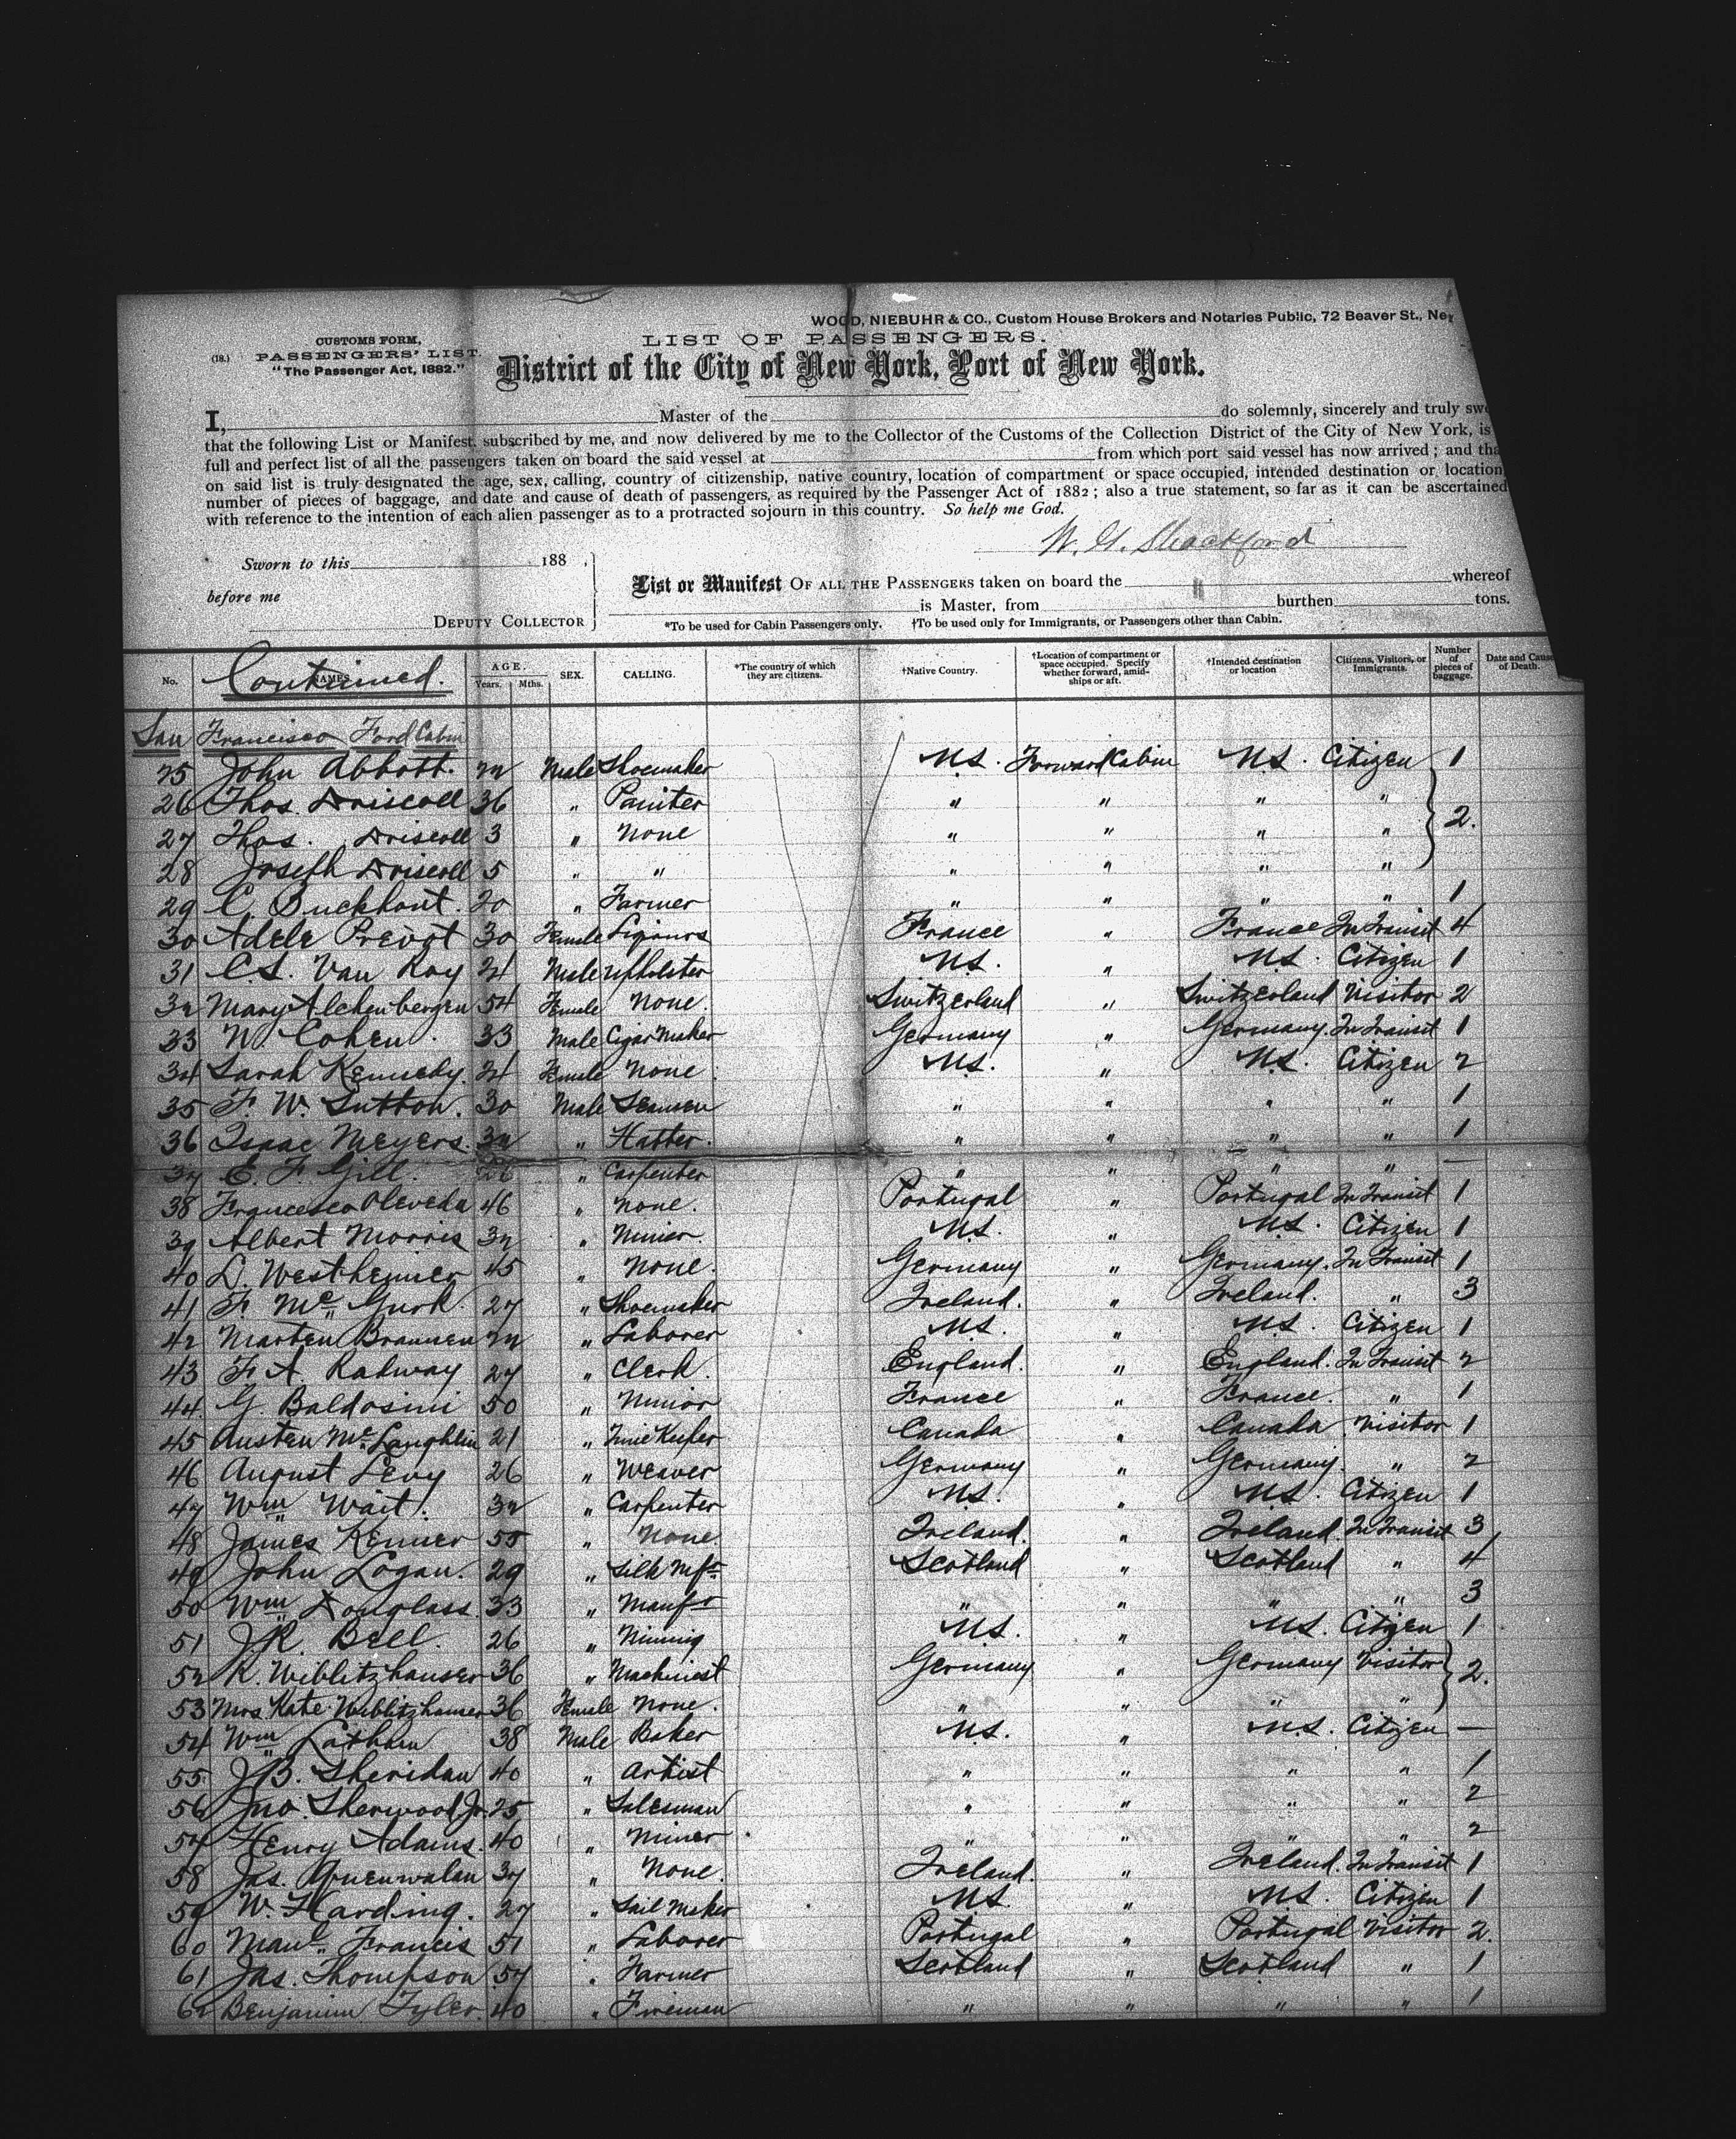 WOOD, NIEBUHR & CO., Custom House Brokers and Notaries Public, 72 Beaver St., Ne
LIST OF PASSENGERS.
CUSTOMS FORM,
(18.) PASSENGERS' LIST.
"The Passenger Act, 1882."
District of the City of New York, Port of New York.
I, Master of the do solemnly, sincerely and truly swe
that the following List or Manifest, subscribed by me, and now delivered by me to the Collector of the Customs of the Collection District of the City of New York, is
full and perfect list of all the passengers taken on board the said vessel at from which port said vessel has now arrived; and tha
on said list is truly designated the age, sex, calling, country of citizenship, native country, location of compartment or space occupied, intended destination or location
number of pieces of baggage, and date and cause of death of passengers, as required by the Passenger Act of 1882; also a true statement, so far as it can be ascertained
with reference to the intention of each alien passenger as to a protracted sojourn in this country. So help me God.
W. G. Shackford
Sworn to this 188 ,
before me
DEPUTY COLLECTOR
List or Manifest OF ALL THE PASSENGERS taken on board the whereof
is Master, from burthen tons.
*To be used for Cabin Passengers only. †To be used only for Immigrants, or Passengers other than Cabin.
No. NAMES Continued. AGE. Years. Mths. SEX. CALLING. *The country of which they are citizens. †Native Country. †Location of compartment or space occupied. Specify whether forward, amidships or aft. †Intended destination or location Citizens, Visitors, or Immigrants. Number of pieces of baggage. Date and Cause of Death.
San Francisco Ford Cabin
25 John Abbott. 22 Male Shoemaker U.S. Forward Cabin U.S. Citizen 1
26 Thos. Driscoll 36 " Painter " " " "
27 Thos. Driscoll 3 " None " " " " 2.
28 Joseph Driscoll 5 " " " " " "
29 C. Buckhout. 20 " Farmer " " " " 1
30 Adele Prevot 30 Female Liquors France " France In Transit 4
31 C.S. Van Roy 21 Male Upholster U.S. " U.S. Citizen 1
32 Mary 54 Female None. Switzerland " Switzerland Visitor 2
33 N. Cohen. 33 Male Cigar Maker Germany " Germany. In Transit 1
34 Sarah Kennedy. 21 Female None. U.S. " U.S. Citizen 2
35 F. W. Sutton. 30 Male Seamen " " " " 1
36 Isaac Meyers. 32 " Hatter. " " " " 1
37 E. F. Gill. 26 " Carpenter " " " " —
38 Francesco Oleveda 46 " None. Portugal " Portugal In Transit 1
39 Albert Morris 32 " Minier. U.S. " U.S. Citizen 1
40 D. Westheimer 45 " None. Germany " Germany. In Transit 1
41 F. Mc Gurk. 27 " Shoemaker Ireland. " Ireland. " 3
42 Marten Brannen 22 " Laborer U.S. " U.S. Citizen 1
43 F. A. Radway 27 " Clerk. England. " England. In Transit 2
44. G. Baldosini 50 " Minior France " France. " 1
45 Austen Mc Laughlin 21 " Time Keeper Canada " Canada. Visitor 1
46 August Levy 26 " Weaver Germany " Germany. " 2
47 Wm Wait. 32 " Carpenter U.S. " U.S. Citizen 1
48 James Kenner 55 " None. Ireland. " Ireland In Transit 3
49 John Logan. 29 " Silk Mfr Scotland " Scotland " 4
50 Wm Douglass. 33 " Manfr " " " " 3
51 J.R. Bell. 26 " Mining U.S. " U.S. Citizen 1
52 K. Wiblitzhauser 36 " Machinest Germany " Germany Visitor 2.
53 Mrs. Kate Wiblitzhauser 36 Female None. " " " "
54 Wm Latham 38 Male Baker U.S. " U.S. Citizen —
55. J.B. Sheridan 40 " Artist " " " " 1
56 Jno. Sherwood Jr. 25 " Salesman " " " " 2
57 Henry Adams. 40 " Miner " " " " 2
58 Jas. 37 " None. Ireland. " Ireland. In Transit 1
59 W. Harding. 27 " Sail Maker U.S. " U.S. Citizen 1
60 Manl Francis 51 " Laborer Portugal " Portugal Visitor 2.
61 Jas. Thompson 57 " Farmer Scotland " Scotland " 1
62 Benjamin Tyler. 40 " Fireman " " " " 1